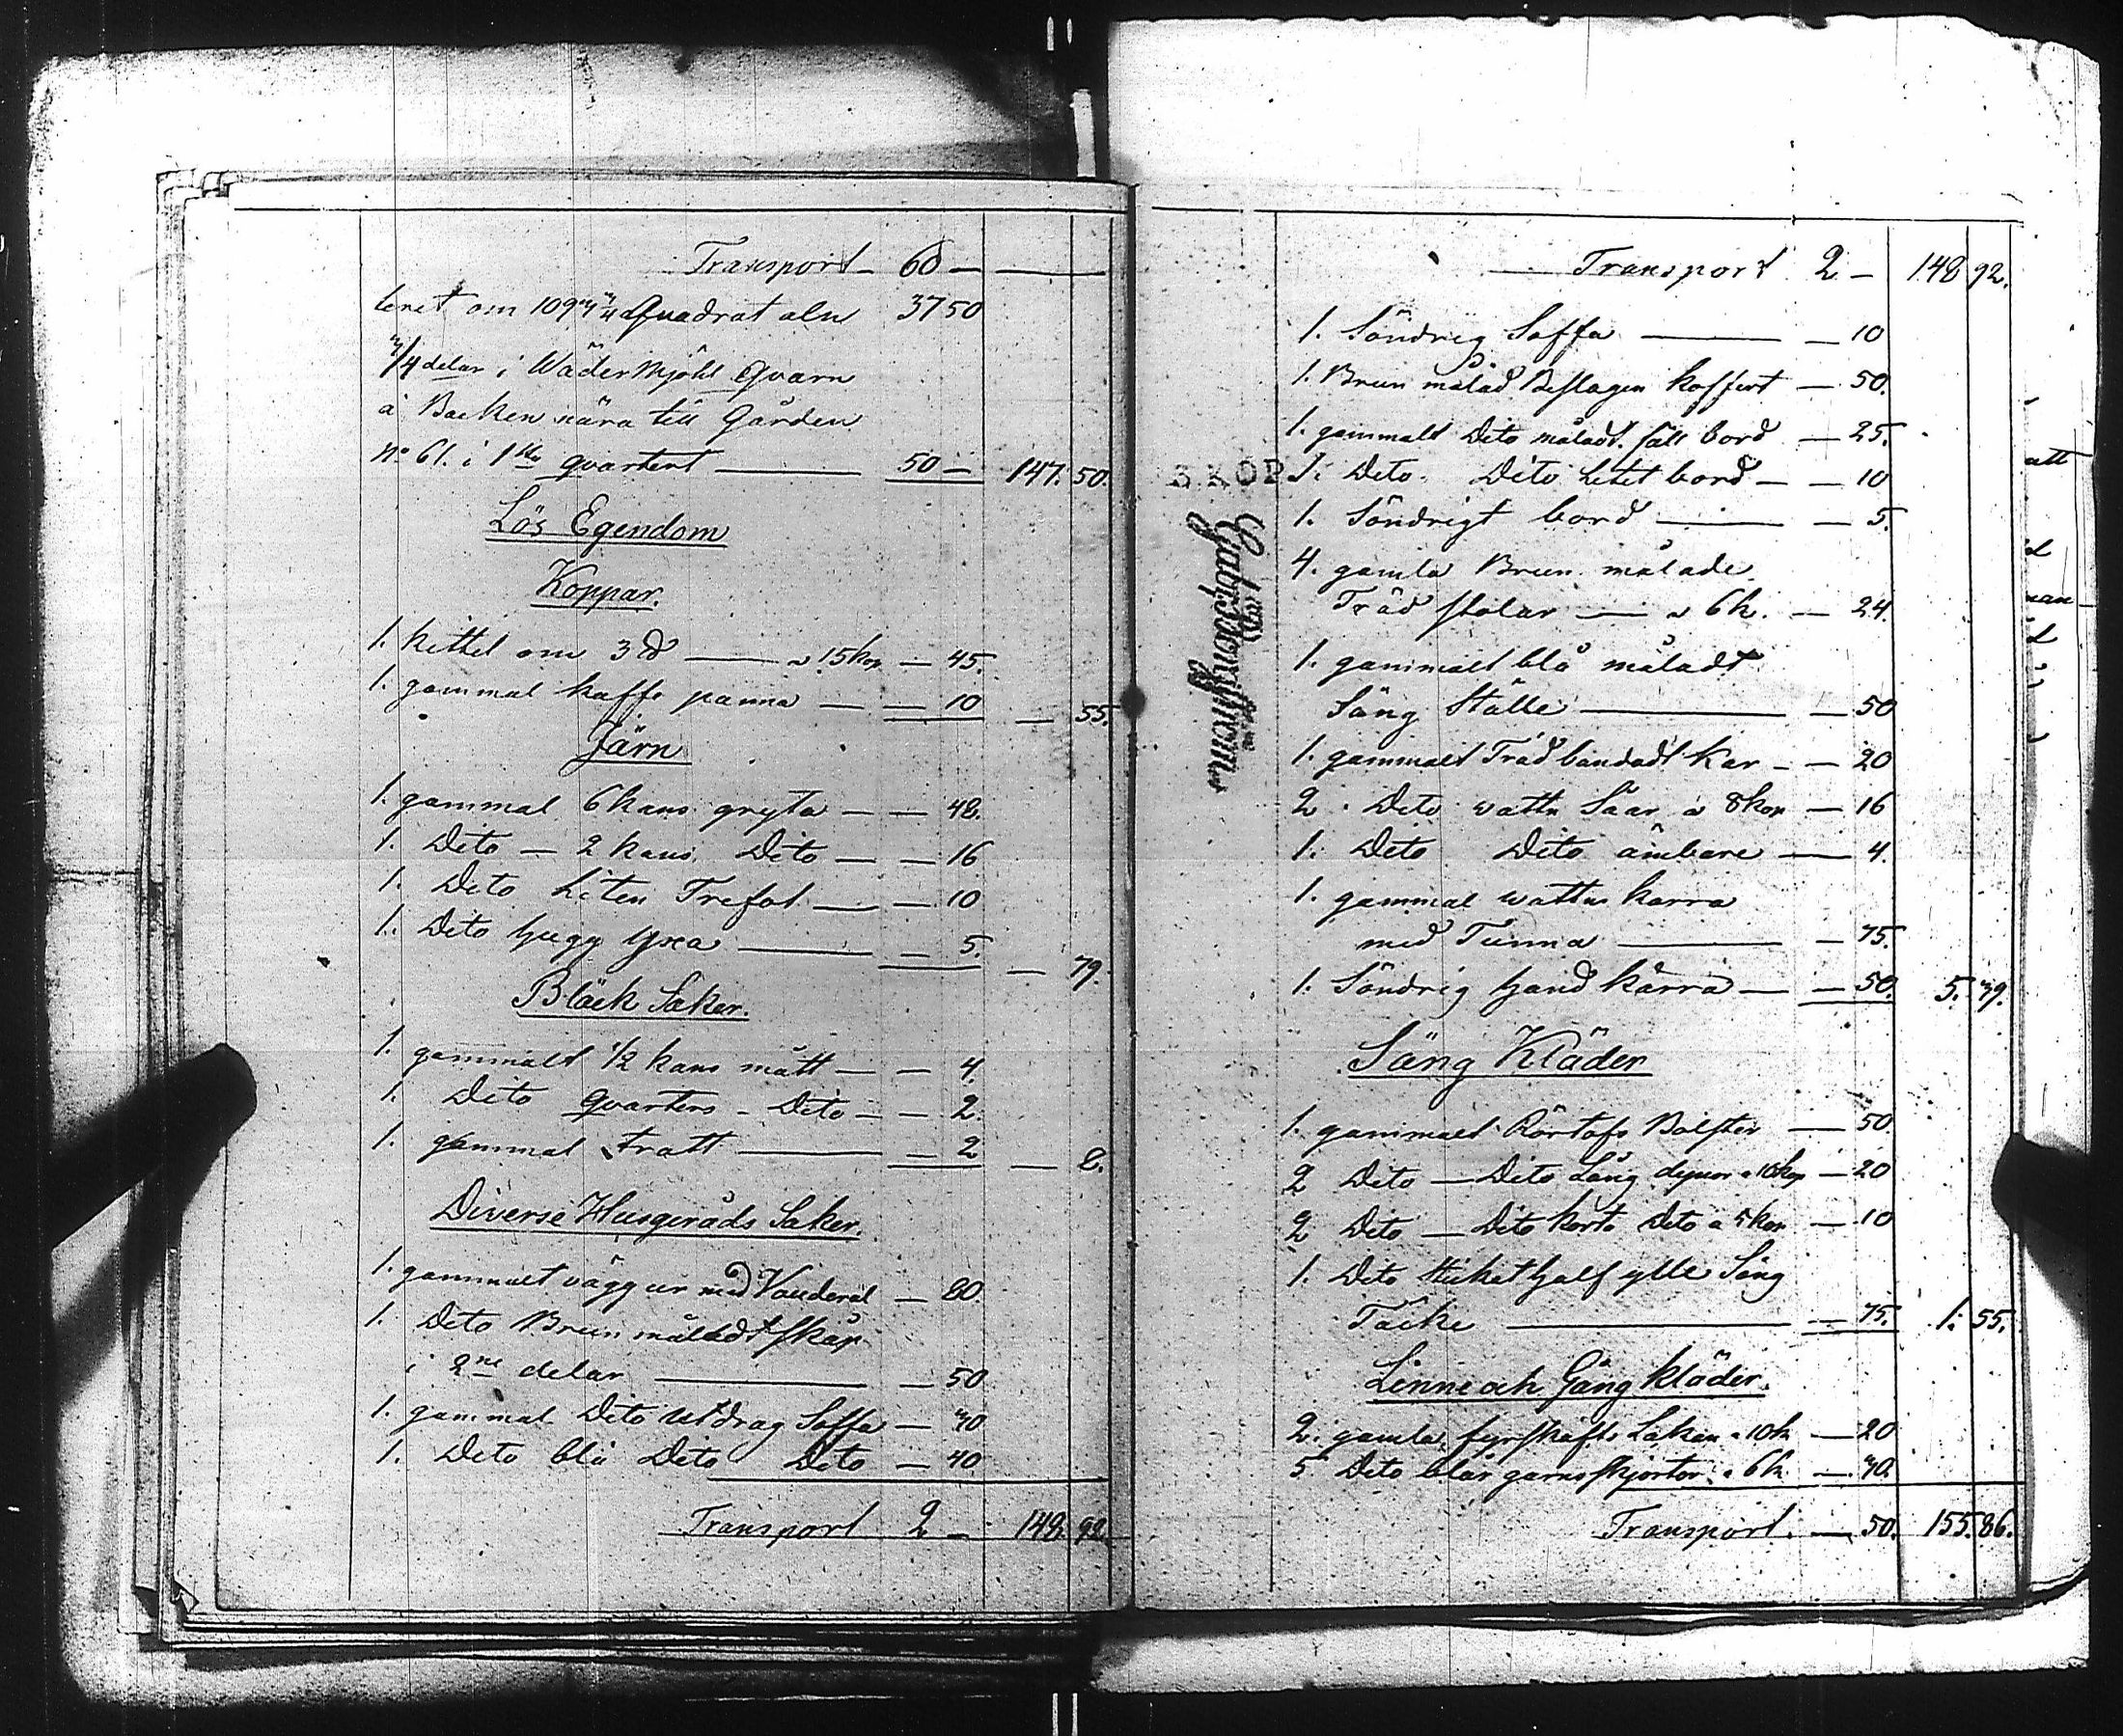 Transport - 60 -
teret om 109 3/4 Quadrat aln 37 50
3/4 delar i Wäder Mjöhl Qvarn
å Backen nära till Gården
No 61. i 1sta qvarteret — 50 - 147. 50.
Lös Egendom
Koppar.
1. Kittel om 3 ℔ — a 15 kop — 45.
1. gammal kaffe panna — — 10 — 55.
Järn
1. gammal 6 kans gryta — — 48.
1. Dito — 2 kans Dito — — 16
1. Dito Liten Trefot — — 10
1. Dito hugg yxa — — 5. — 79.
Bläck Saker.
1. gammalt 1/2 kans mått — — 4.
1. Dito Qvarters - Dito — — 2.
1. gammal tratt — — 2 — 8.
Diverse Husgeråds Saker.
1. gammalt vägg ur med — 80.
1. Dito Brun måladt skåp
i 2ne delar — — 50
1. gammal Dito utdrag Soffa — 30
1. Dito blå Dito Dito — 40.
Transport 2 — 148. 92.
Transport 2 — 148 92.
1. Söndrig Soffa — — 10
1. Brun målad Beslagen koffert — 50.
1. gammalt Dito måladt fäll bord — 25.
1. Dito Dito Litet bord — — 10
1. Söndrigt bord — — 5.
4. gamla Brun målade
Träd stolar — a 6 k. — 24.
1. gammalt blå måladt
Säng Ställe — — 50
1. gammalt Träd bandadt Kar — — 20
2. Dito wattu Såar a 8 kop — 16
1. Dito Dito ämbare — 4.
1. gammal wattu karra
med Tunna — — 75.
1. Söndrig hand kärra — — 50. 5. 39.
Säng Kläder
1. gammalt Bolster — 50
2 Dito — Dito Lång dynor a 10 kop — 20
2 Dito — Dito korta Dito a 5 kop — 10
1. Dito Stickat half ylle Säng
Täcke — — 75. 1. 55.
Linne och Gång kläder.
2. gamla fyrskäfts Lakan a 10 k — 20
5 Dito blår garns skjortor a 6 k — 30.
Transport. — 50. 155. 86.